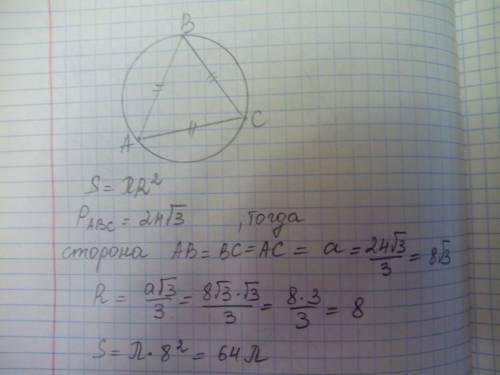 B
A
C
S = πR²
P_ABC = 24√3 , тогда
сторона AB = BC = AC = a = 24√3/3 = 8√3
R = a√3/3 = 8√3·√3/3 = 8·3/3 = 8
S = π·8² = 64π